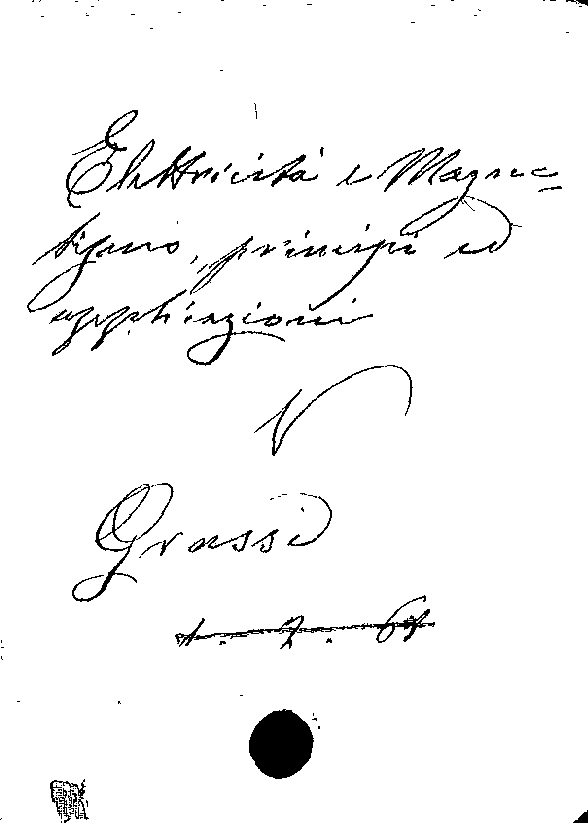 Elettricità e Magne-
tismo, principi ed
applicazioni
V
Grassi
1. 2. 67